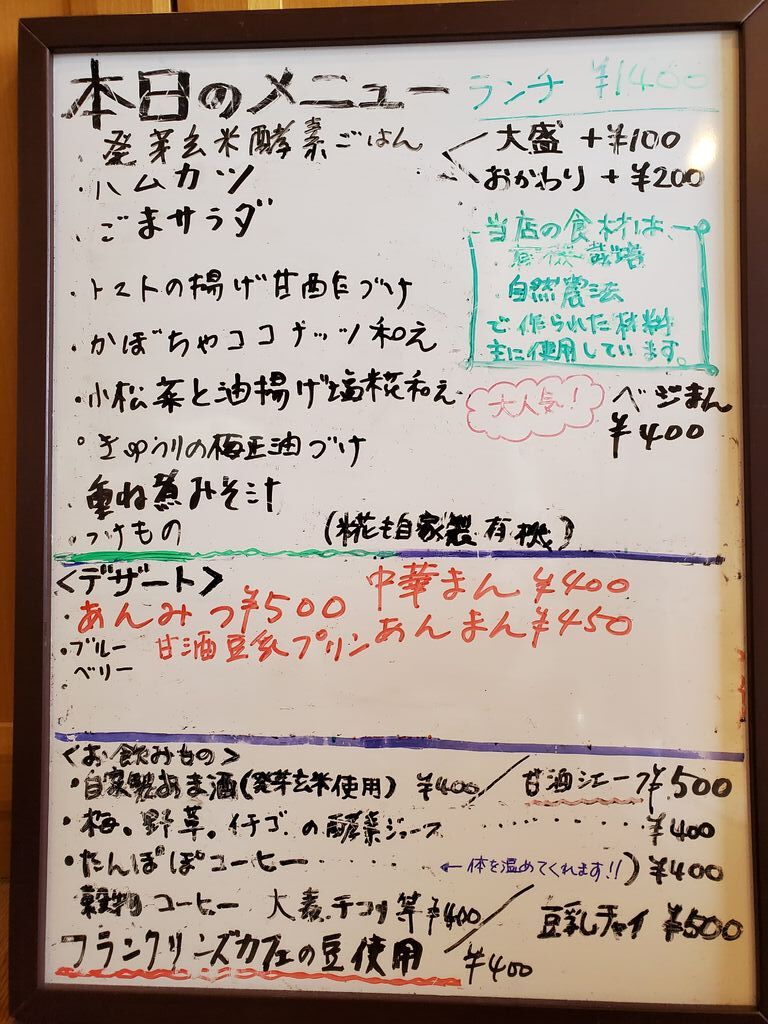 本日のメニュー ランチ ¥1400
発芽玄米酵素ごはん
大盛 +¥100
おかわり +¥200
・ハムカツ
・ごまサラダ
当店の食材は、
有機栽培
自然農法
で作られた材料
主に使用しています。
・トマトの揚げ甘酉乍づけ
・かぼちゃココナッツ和え
・小松菜と油揚げ塩糀和え
大人気! ベジまん
¥400
・きゅうりの梅正油づけ
重ね煮みそ汁
つけもの (糀も自家製 有機)
<デザート> 中華まん ¥400
・あんみつ¥500
あんまん¥450
・ブルーベリー 甘酒豆乳プリン
<お飲みもの>
・自家製あま酒(発芽玄米使用) ¥400 / 甘酒シェーク ¥500
・梅。野草。イチゴ の酵素ジュース ········ ¥400
・たんぽぽコーヒー ···· ←体を温めてくれます!!) ¥400
穀物コーヒー 大麦、チコリ等 ¥400 / 豆乳チャイ ¥500
フランクリンズカフェの豆使用 ¥400